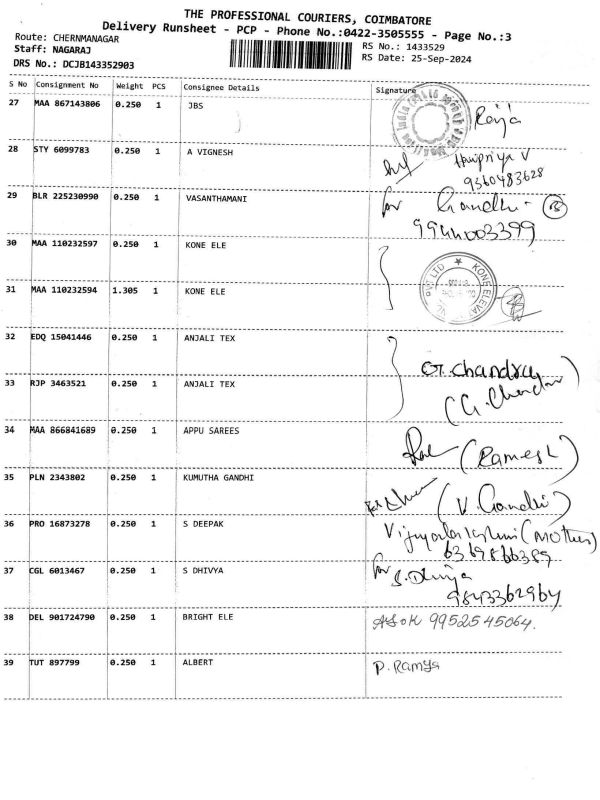 THE PROFESSIONAL COURIERS, COIMBATORE
Delivery Runsheet - PCP - Phone No.:0422-3505555 - Page No.:3
Route: CHERNMANAGAR
RS No.: 1433529
Staff: NAGARAJ
RS Date: 25-Sep-2024
DRS No.: DCJB143352903
S No Consignment No Weight PCS Consignee Details Signature
27 MAA 867143806 0.250 1 JBS
28 STY 6099783 0.250 1 A VIGNESH
9360483628
29 BLR 225230990 0.250 1 VASANTHAMANI for Gandhi
9944003399
30 MAA 110232597 0.250 1 KONE ELE
31 MAA 110232594 1.305 1 KONE ELE
32 EDQ 15041446 0.250 1 ANJALI TEX
G. Chandra
33 RJP 3463521 0.250 1 ANJALI TEX
34 MAA 866841689 0.250 1 APPU SAREES
(Ramesh)
35 PLN 2343802 0.250 1 KUMUTHA GANDHI
(V. Gandhi)
36 PRO 16873278 0.250 1 S DEEPAK
(Mother)
6369866389
37 CGL 6013467 0.250 1 S DHIVYA for S. Dhivya
9843362964
38 DEL 901724790 0.250 1 BRIGHT ELE ASOK 9952545064.
39 TUT 897799 0.250 1 ALBERT P. Ramya